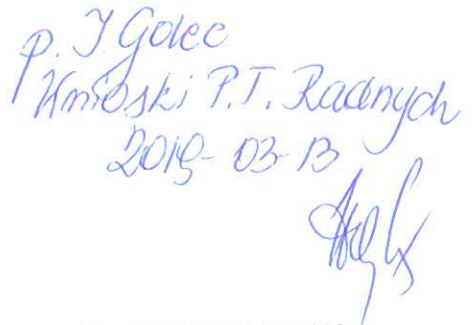 p. J Golec
Wnioski P.T. Radnych
2019-03-13